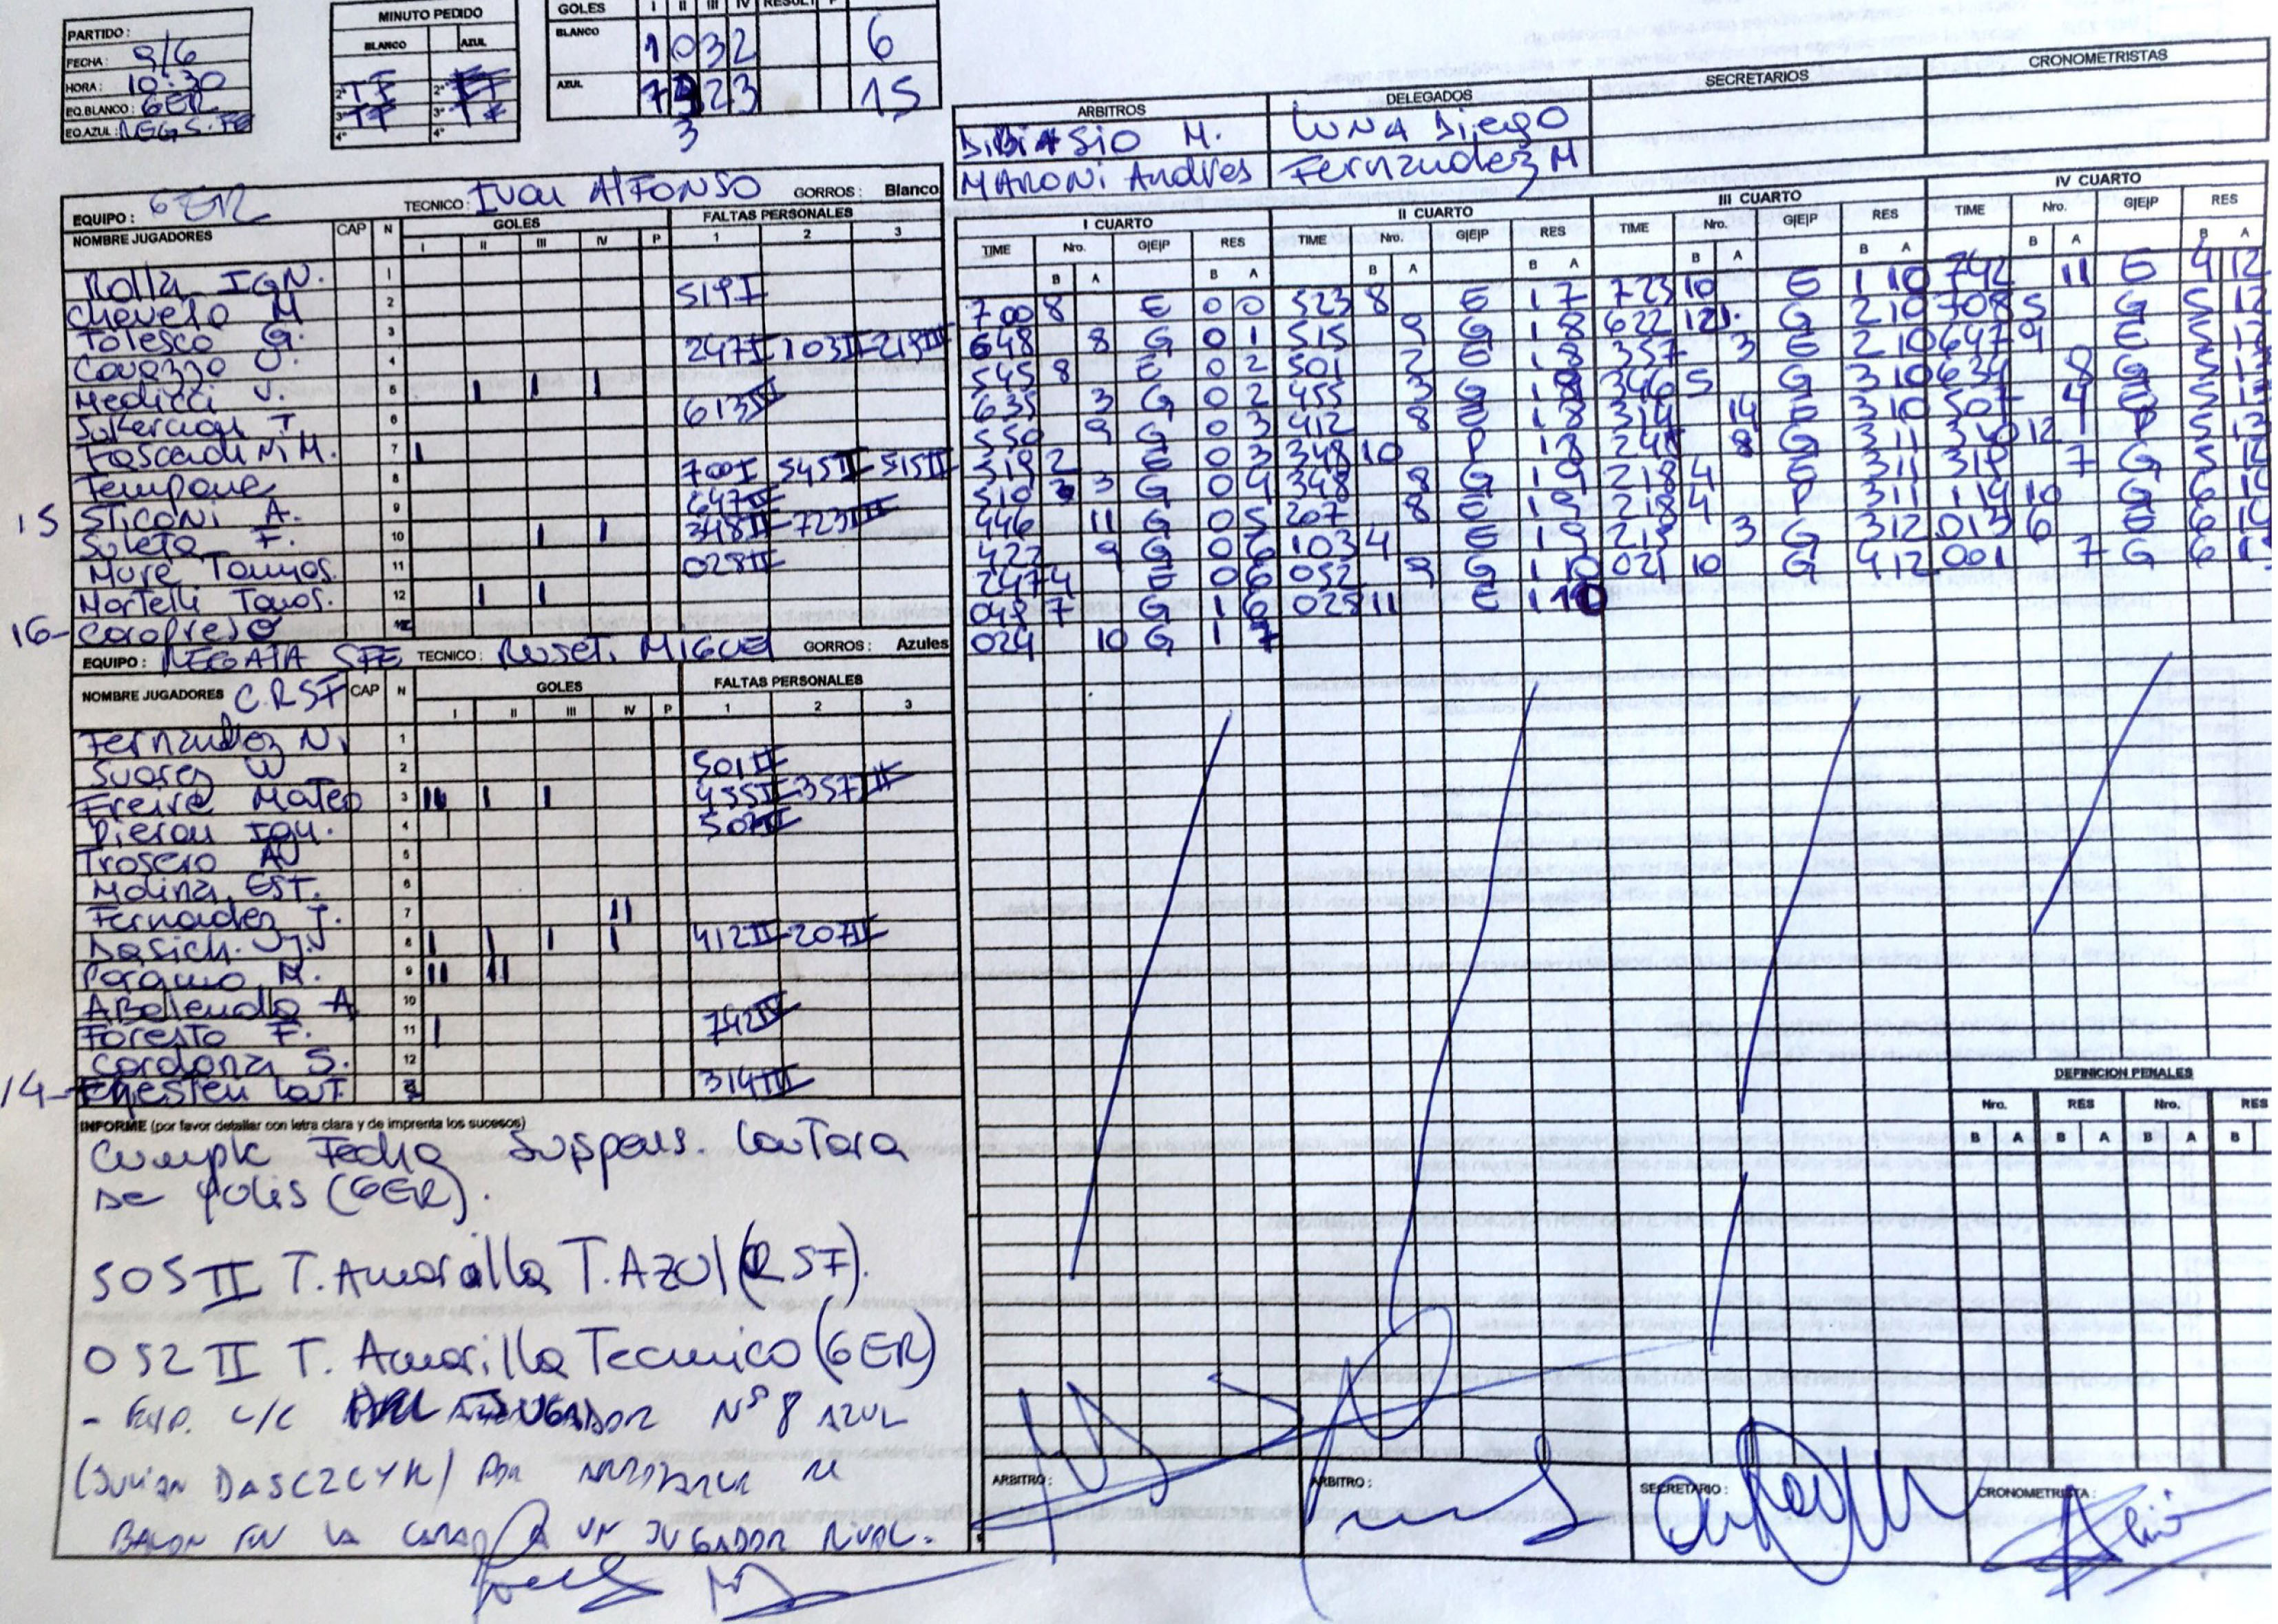 PARTIDO :
FECHA : 9/6
HORA : 10:30
EQ.BLANCO : GER
EQ.AZUL : REGS.FE
MINUTO PEDIDO
BLANCO AZUL
2° TF 2°
3° TF 3° TF
4° 4°
GOLES I II III IV RESULT P
BLANCO 1 0 3 2 6
AZUL 7 2 3 15
3
ARBITROS DELEGADOS SECRETARIOS CRONOMETRISTAS
DiBiASio M. LUNA Diego
MARONi Andres Fernandez M
EQUIPO : GER TECNICO : Ivan AlFONSO GORROS : Blanco
NOMBRE JUGADORES CAP N GOLES FALTAS PERSONALES
I II III IV P 1 2 3
Rolla IGN. 1
Chevelo M 2 519 I
Tolesco G. 3
Cavazzo J. 4 247 I 103 II 218 III
Medicci J. 5 I I I
6 613 IV
7 I
Tempone 8 700 I 545 I 515 II
15 STICONi A. 9 647 IV
Suleta F. 10 I I 348 II - 723 III
Mure Tomas. 11 028 II
Martelli Tomas. 12 I I
16-
EQUIPO : REGATA SFE TECNICO : Ruseti MIGUEL GORROS : Azules
NOMBRE JUGADORES C.RSF CAP N GOLES FALTAS PERSONALES
I II III IV P 1 2 3
Fernandez N. 1
Suarez W 2 501 II
Freire Mateo 3 III I I 455 II - 357 III
Pieron Ign. 4 507 IV
Trosero A 5
Molina EST. 6
Fernadez J. 7 II
Dasich. J 8 I I I I 412 II - 207 II
Paramo M. 9 II II
Abelendo A 10
Foresto F. 11 I 742 IV
Cardona S. 12
14- 314 III
I CUARTO II CUARTO III CUARTO IV CUARTO
TIME Nro. G|E|P RES TIME Nro. G|E|P RES TIME Nro. G|E|P RES TIME Nro. G|E|P RES
B A B A B A B A B A B A B A B A
700 8 E 0 0 523 8 E 1 7 723 10 E 1 10 742 11 E 4 12
648 8 G 0 1 515 9 G 1 8 622 12 G 2 10 708 5 G 5 12
545 8 E 0 2 501 2 E 1 8 357 3 E 2 10 647 9 E 5 12
635 3 G 0 2 455 3 G 1 8 346 5 G 3 10 634 8 G 5 13
550 9 G 0 3 412 8 E 1 8 314 14 E 3 10 507 4 E 5 13
519 2 E 0 3 348 10 P 1 8 241 8 G 3 11 340 12 P 5 13
510 3 G 0 4 348 8 G 1 9 218 4 E 3 11 318 7 G 5 12
446 11 G 0 5 207 8 E 1 9 218 4 P 3 11 114 10 G 6 14
422 9 G 0 6 103 4 E 1 9 213 3 G 3 12 013 6 E 6 14
247 4 E 0 6 052 9 G 1 10 021 10 G 4 12 001 7 G 6 15
048 7 G 1 6 028 11 E 1 10
024 10 G 1 7
DEFINICION PENALES
Nro. RES Nro. RES
B A B A B A B
INFORME (por favor detallar con letra clara y de imprenta los sucesos)
Cumple Fecha Suspens. Lautara
De Polis (GER).
505 II T. Amarilla T. AZUl (RSF).
052 II T. Amarilla Tecnico (GER)
- EXP. C/C JUGADOR N° 8 AZUL
(JULIAN DASCZCYK) POR ARROJARLE EL
BALON EN LA CARA A UN JUGADOR RIVAL.
ARBITRO : ARBITRO : SECRETARIO : CRONOMETRISTA :